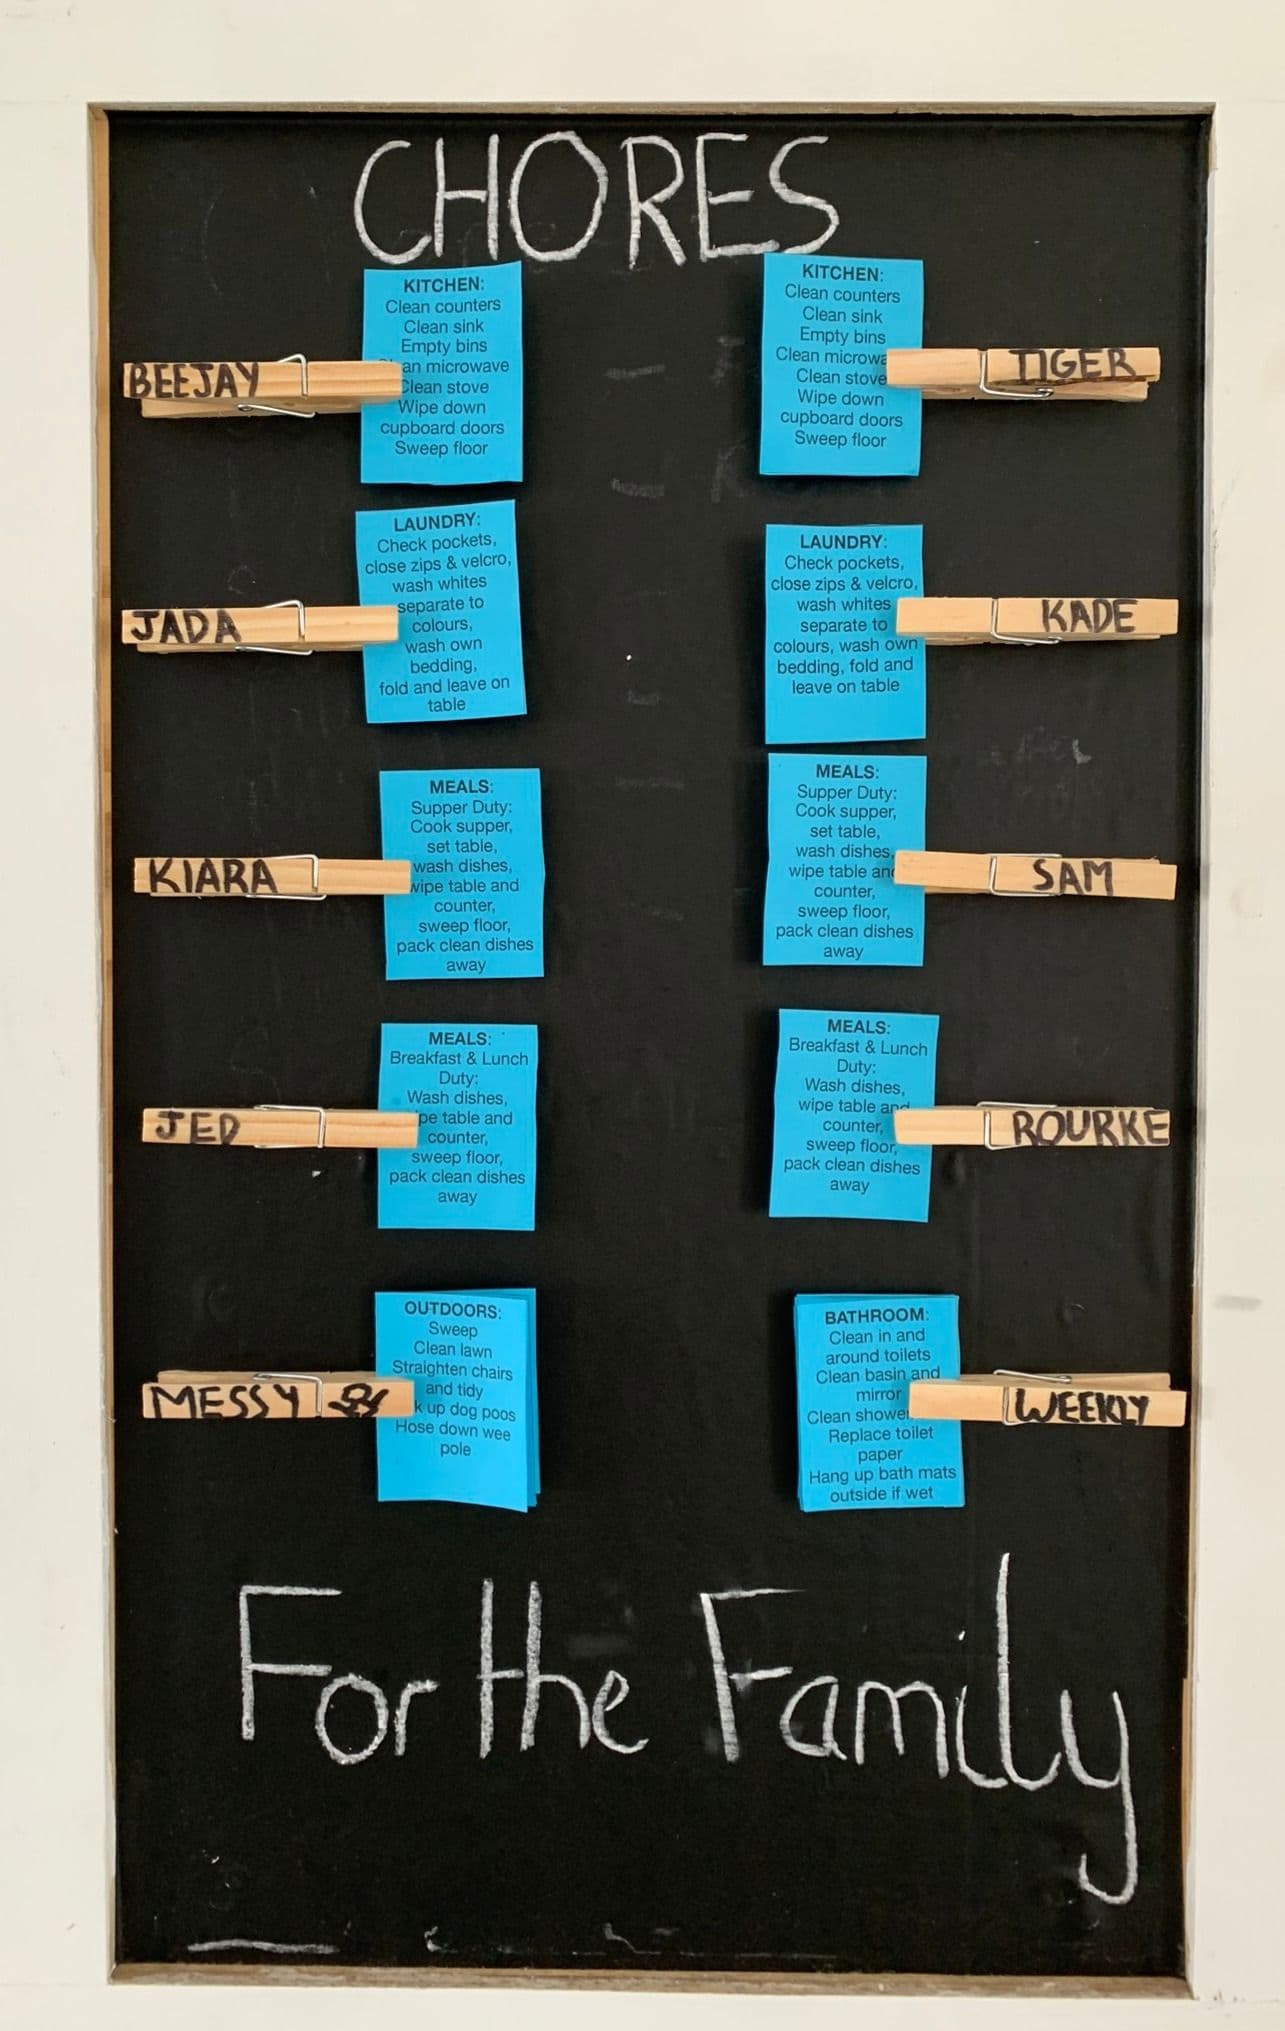 CHORES
BEEJAY
KITCHEN:
Clean counters
Clean sink
Empty bins
microwave
Clean stove
Wipe down
cupboard doors
Sweep floor
KITCHEN:
Clean counters
Clean sink
Empty bins
Clean
Clean stove
Wipe down
cupboard doors
Sweep floor
TIGER
JADA
LAUNDRY:
Check pockets,
close zips & velcro,
wash whites
separate to
colours,
wash own
bedding,
fold and leave on
table
LAUNDRY:
Check pockets,
close zips & velcro,
wash whites
separate to
colours, wash own
bedding, fold and
leave on table
KADE
KIARA
MEALS:
Supper Duty:
Cook supper,
set table,
wash dishes,
wipe table and
counter,
sweep floor,
pack clean dishes
away
MEALS:
Supper Duty:
Cook supper,
set table,
wash dishes,
wipe table and
counter,
sweep floor,
pack clean dishes
away
SAM
JED
MEALS:
Breakfast & Lunch
Duty:
Wash dishes,
table and
counter,
sweep floor,
pack clean dishes
away
MEALS:
Breakfast & Lunch
Duty:
Wash dishes,
wipe table and
counter,
sweep floor,
pack clean dishes
away
ROURKE
MESSY
OUTDOORS:
Sweep
Clean lawn
Straighten chairs
and tidy
up dog poos
Hose down wee
pole
BATHROOM:
Clean in and
around toilets
Clean basin and
mirror
Clean shower
Replace toilet
paper
Hang up bath mats
outside if wet
WEEKLY
For the Family